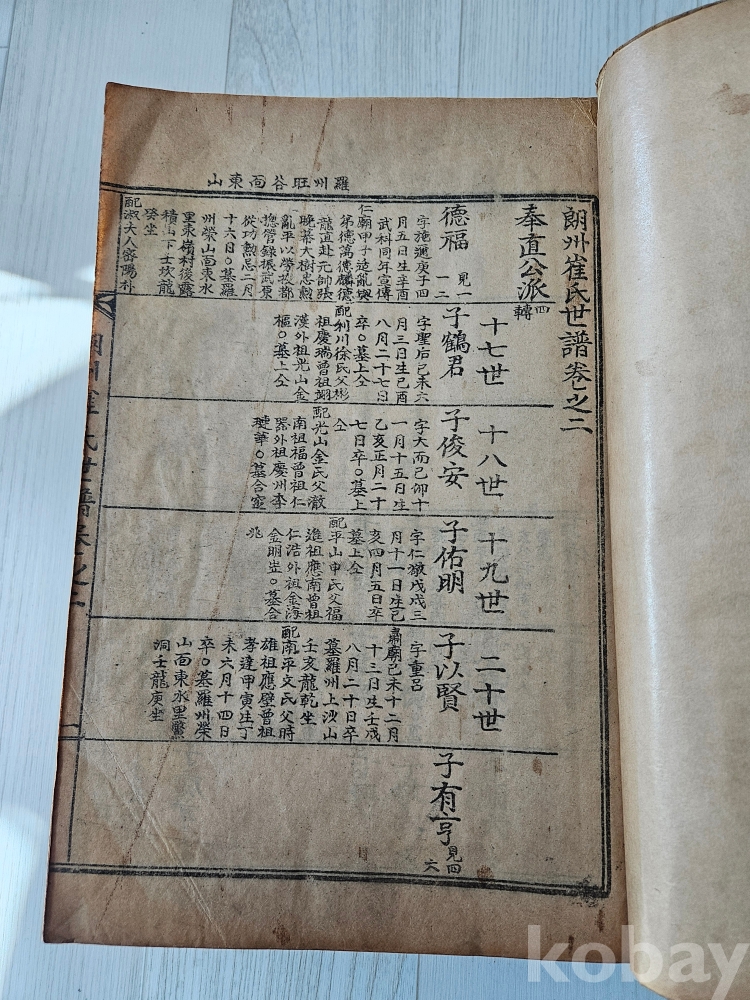 羅州旺谷面東山
朗州崔氏世譜卷之二
奉直公派 四轉
德福 見一 一二
字施遁庚子四
月五日生辛酉
武科同年宣傳
仁廟甲子适亂與
弟德萬德麟德
龍直赴元帥張
晚幕大樹忠勲
亂平以勞拔都
摠管錄振武原
從功勲忌二月
十六日○墓羅
州榮山面東水
里東嶺村後露
積山下士坎龍
癸坐
配淑夫人密陽朴
十七世
子鶴君
字聖后己未六
月三日生己酉
八月二十七日
卒○墓上仝
配利川徐氏父彬
祖慶瑞曾祖翊
漢外祖光山金
樞○墓上仝
十八世
子俊安
字大而己卯十
一月十五日生
乙亥正月二十
七日卒○墓上
仝
配光山金氏父澈
南祖福曾祖仁
器外祖慶州李
璉華○墓合窆
十九世
子佑明
字仁徵戊戌三
月十一日生己
亥四月五日卒
墓上仝
配平山申氏父福
進祖應南曾祖
仁浩外祖金海
金明㞳○墓合
兆
二十世
子以賢
字重呂
肅廟己未十二月
十三日生壬戌
八月二十日卒
墓羅州上沙山
壬亥龍乾坐
配南平文氏父時
雄祖應壁曾祖
孝達甲寅生丁
未六月十四日
卒○墓羅州榮
山面東水里鱉
洞壬龍庚坐
子有亨 見四 六
朗州崔氏世譜卷之二
kobay